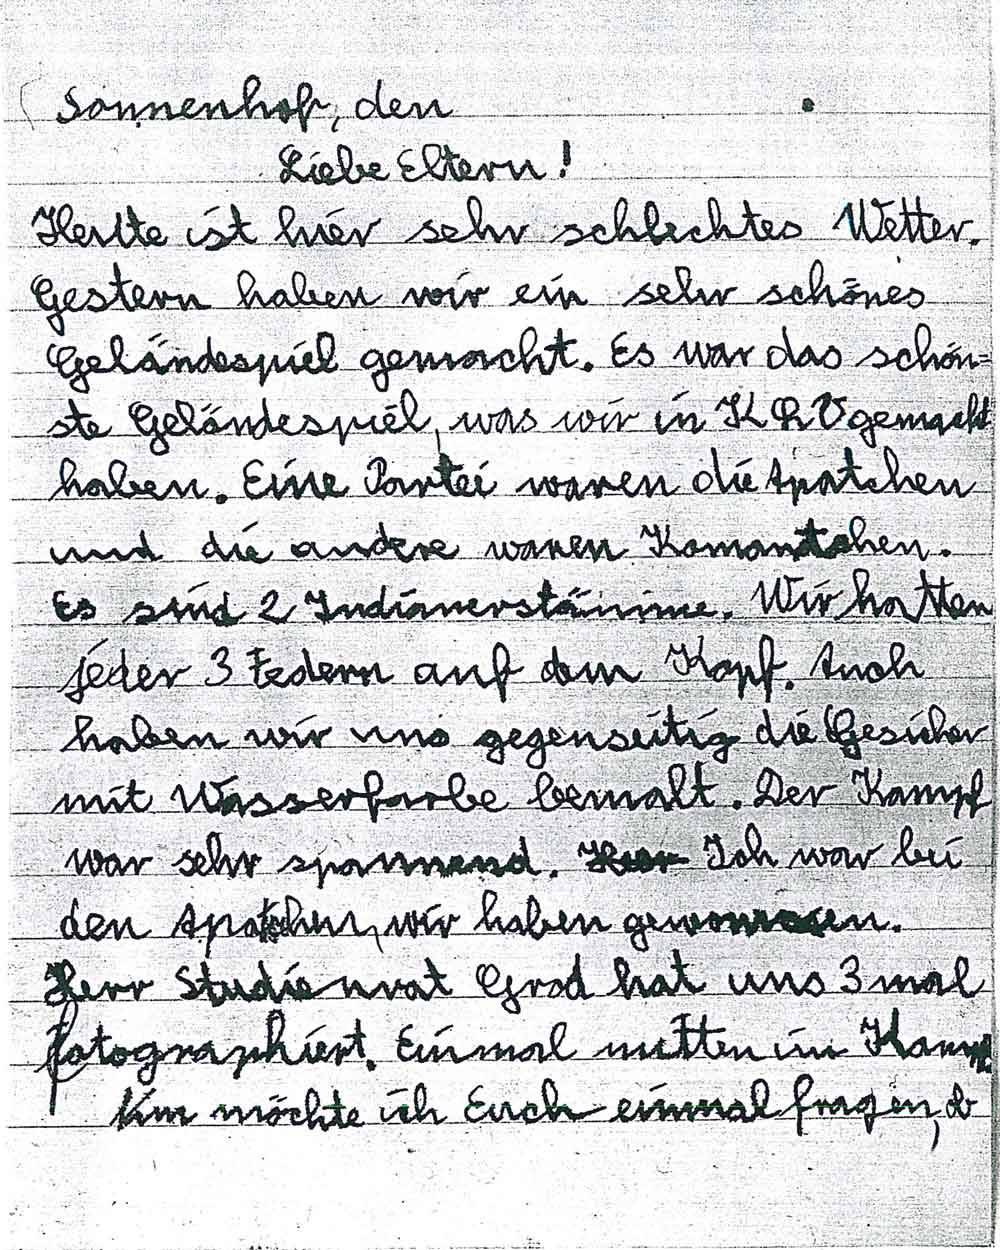 Sonnenhof, den
Liebe Eltern!
Heute ist hier sehr schlechtes Wetter.
Gestern haben wir ein sehr schönes
Geländespiel gemacht. Es war das schön=
ste Geländespiel, was wir in KLV gemacht
haben. Eine Partei waren die Apatchen
und die andere waren Komantschen.
Es sind 2 Indianerstämme. Wir hatten
jeder 3 Federn auf dem Kopf. Auch
haben wir uns gegenseitig die Gesicher
mit Wasserfarbe bemalt. Der Kampf
war sehr spannend. Ich war bei
den Apatschen, wir haben gewonnen.
Herr Studienrat Grod hat uns 3 mal
fotographiert. Einmal mitten im Kampf.
Nun möchte ich Euch einmal fragen, ob